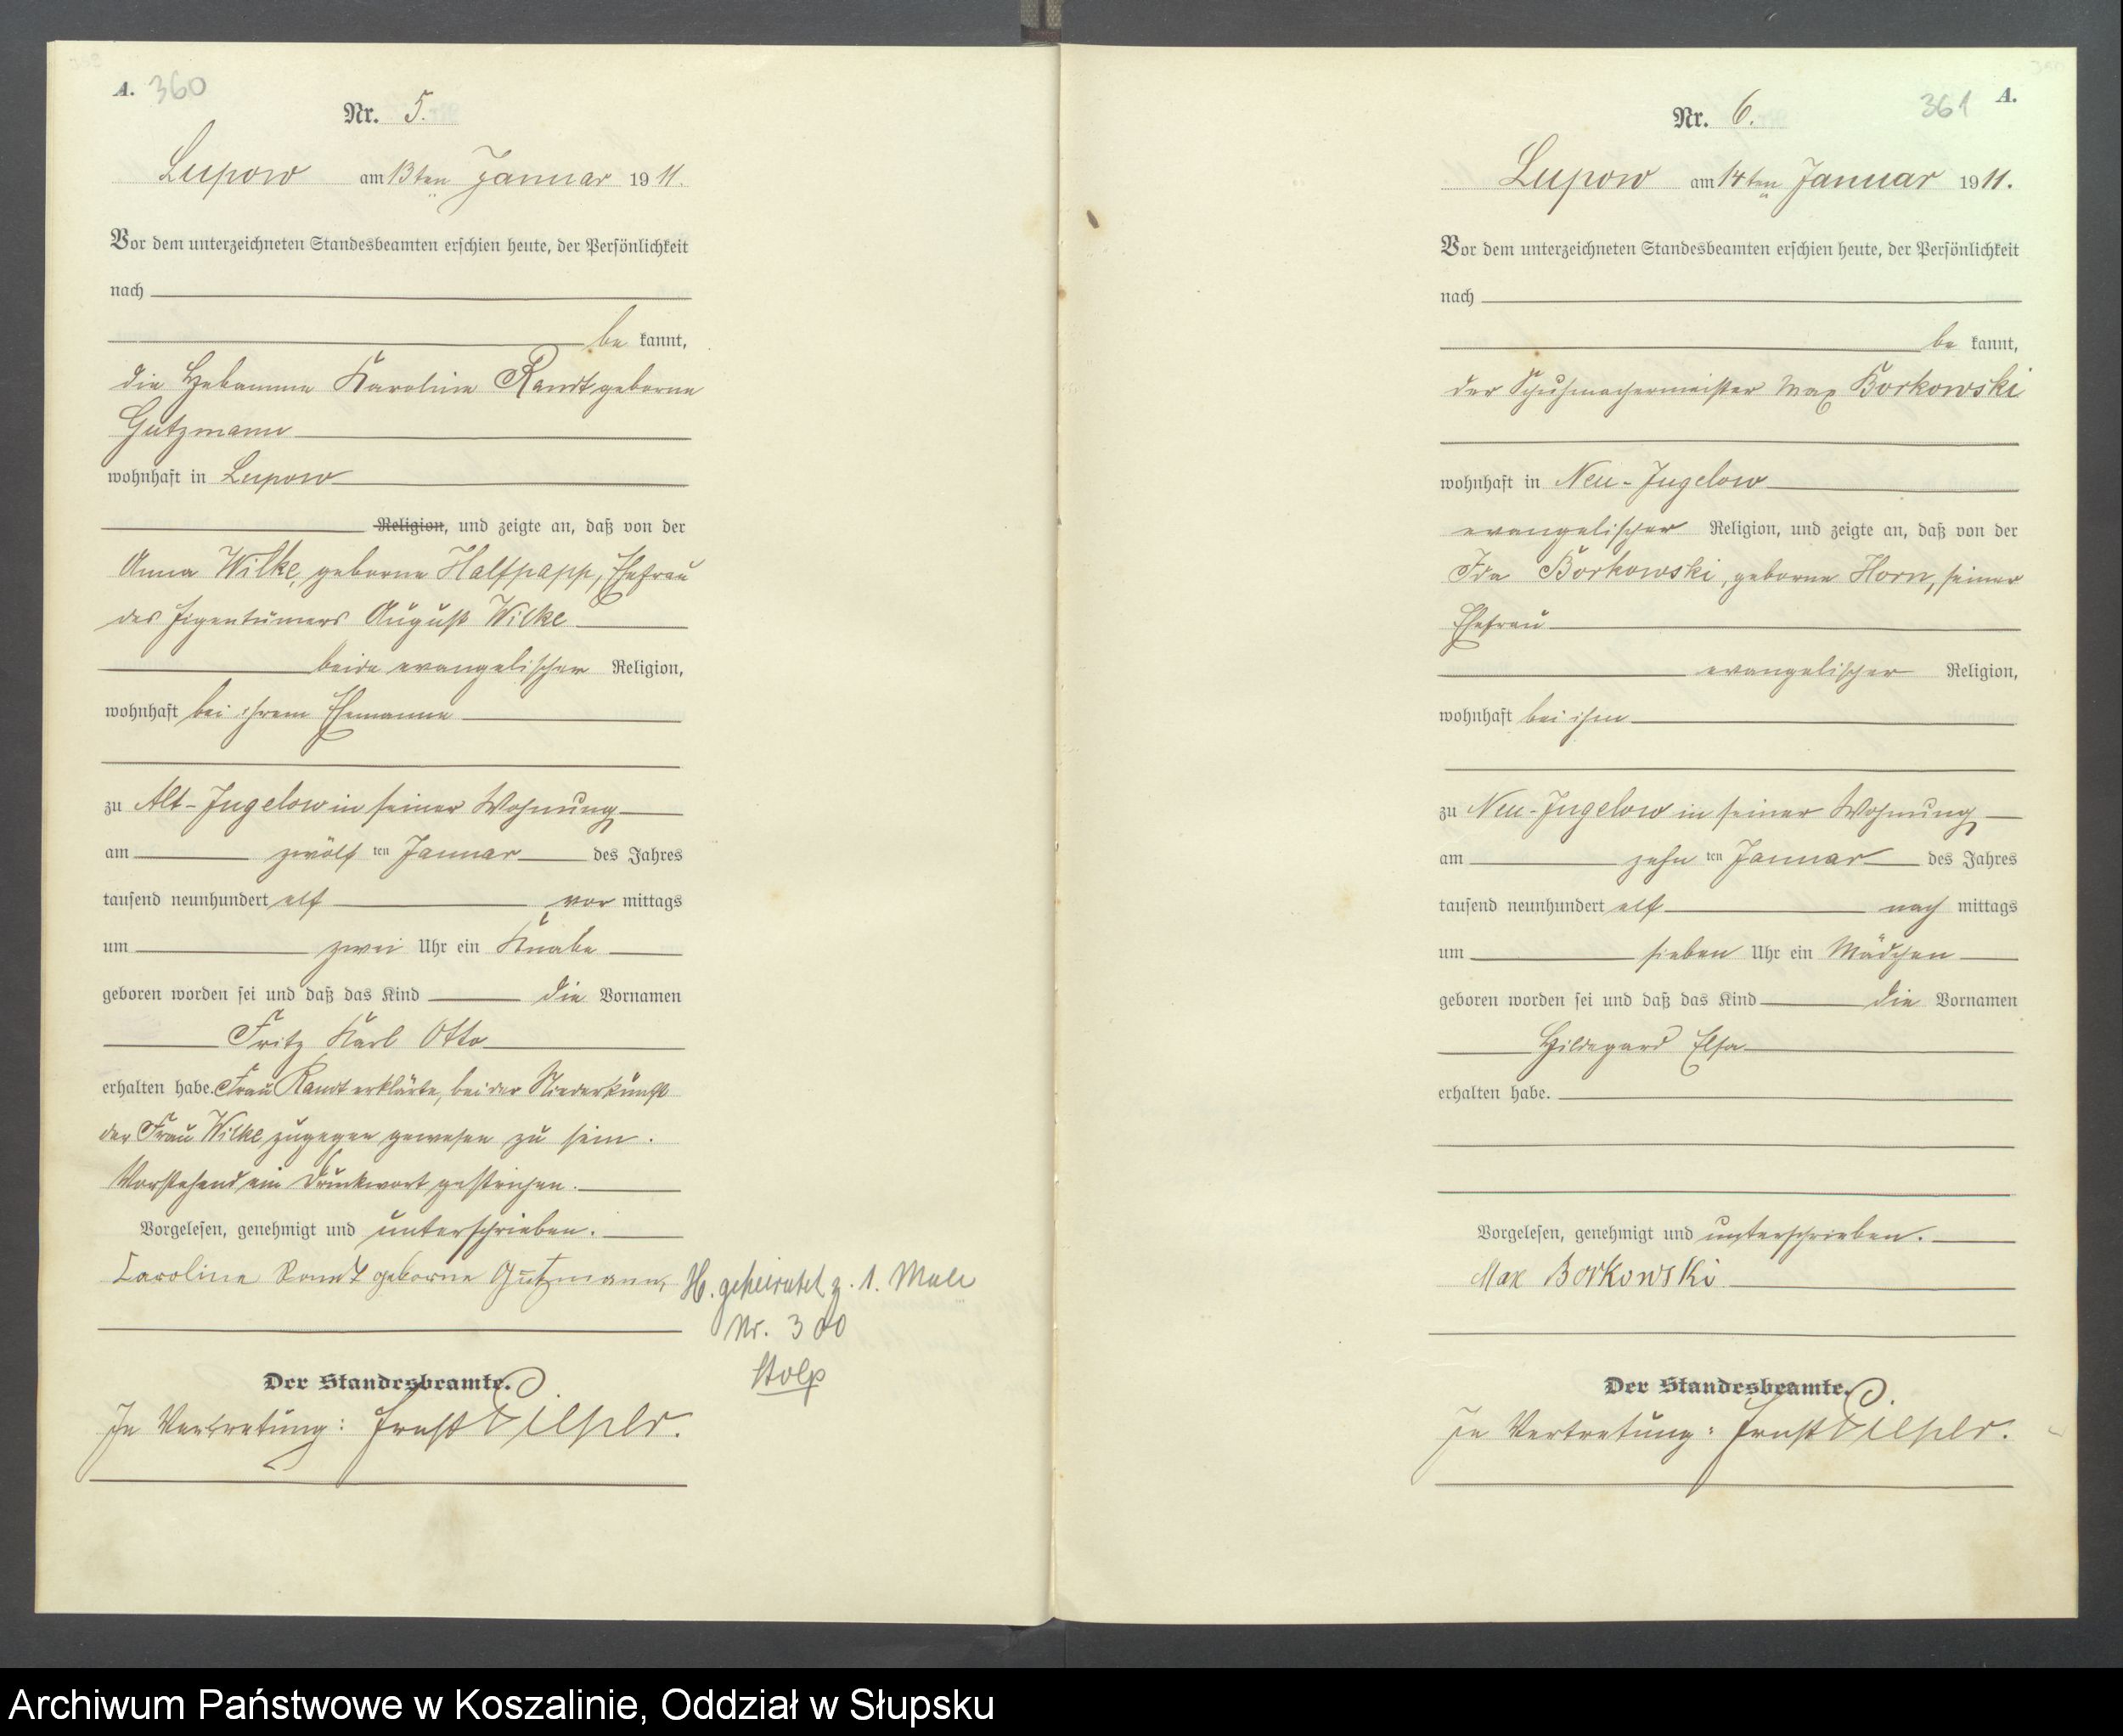 A. 360
Nr. 5.
Lupow am 13ten Januar 1911.
Vor dem unterzeichneten Standesbeamten erschien heute, der Persönlichkeit
nach
be kannt,
die Hebamme Karoline Randt geborne
Gutzmann
wohnhaft in Lupow
Religion, und zeigte an, daß von der
Anna Wilke, geborne Halfpapp, Ehefrau
des Eigentümers August Wilke
beide evangelischer Religion,
wohnhaft bei ihrem Ehemanne
zu Alt-Jugelow in seiner Wohnung
am zwölf ten Januar des Jahres
tausend neunhundert elf vor mittags
um zwei Uhr ein Knabe
geboren worden sei und daß das Kind die Vornamen
Fritz Karl Otto
erhalten habe. Frau Randt erklärte, bei der Niederkunft
der Frau Wilke zugegen gewesen zu sein.
Vorstehend ein Druckwort gestrichen.
Vorgelesen, genehmigt und unterschrieben.
Caroline Randt geborne Gutzmann,
H. geheiratet z. 1. Male
Nr. 300
Stolp
Der Standesbeamte.
In Vertretung: Ernst
361 A.
Nr. 6.
Lupow am 14ten Januar 1911.
Vor dem unterzeichneten Standesbeamten erschien heute, der Persönlichkeit
nach
be kannt,
der Schuhmachermeister Max Borkowski
wohnhaft in Neu-Jugelow
evangelischer Religion, und zeigte an, daß von der
Ida Borkowski, geborne Horn, seiner
Ehefrau
evangelischer Religion,
wohnhaft bei ihm
zu Neu-Jugelow in seiner Wohnung
am zehn ten Januar des Jahres
tausend neunhundert elf nach mittags
um sieben Uhr ein Mädchen
geboren worden sei und daß das Kind die Vornamen
Hildegard Elsa
erhalten habe.
Vorgelesen, genehmigt und unterschrieben.
Max Borkowski
Der Standesbeamte.
In Vertretung: Ernst
Archiwum Państwowe w Koszalinie, Oddział w Słupsku